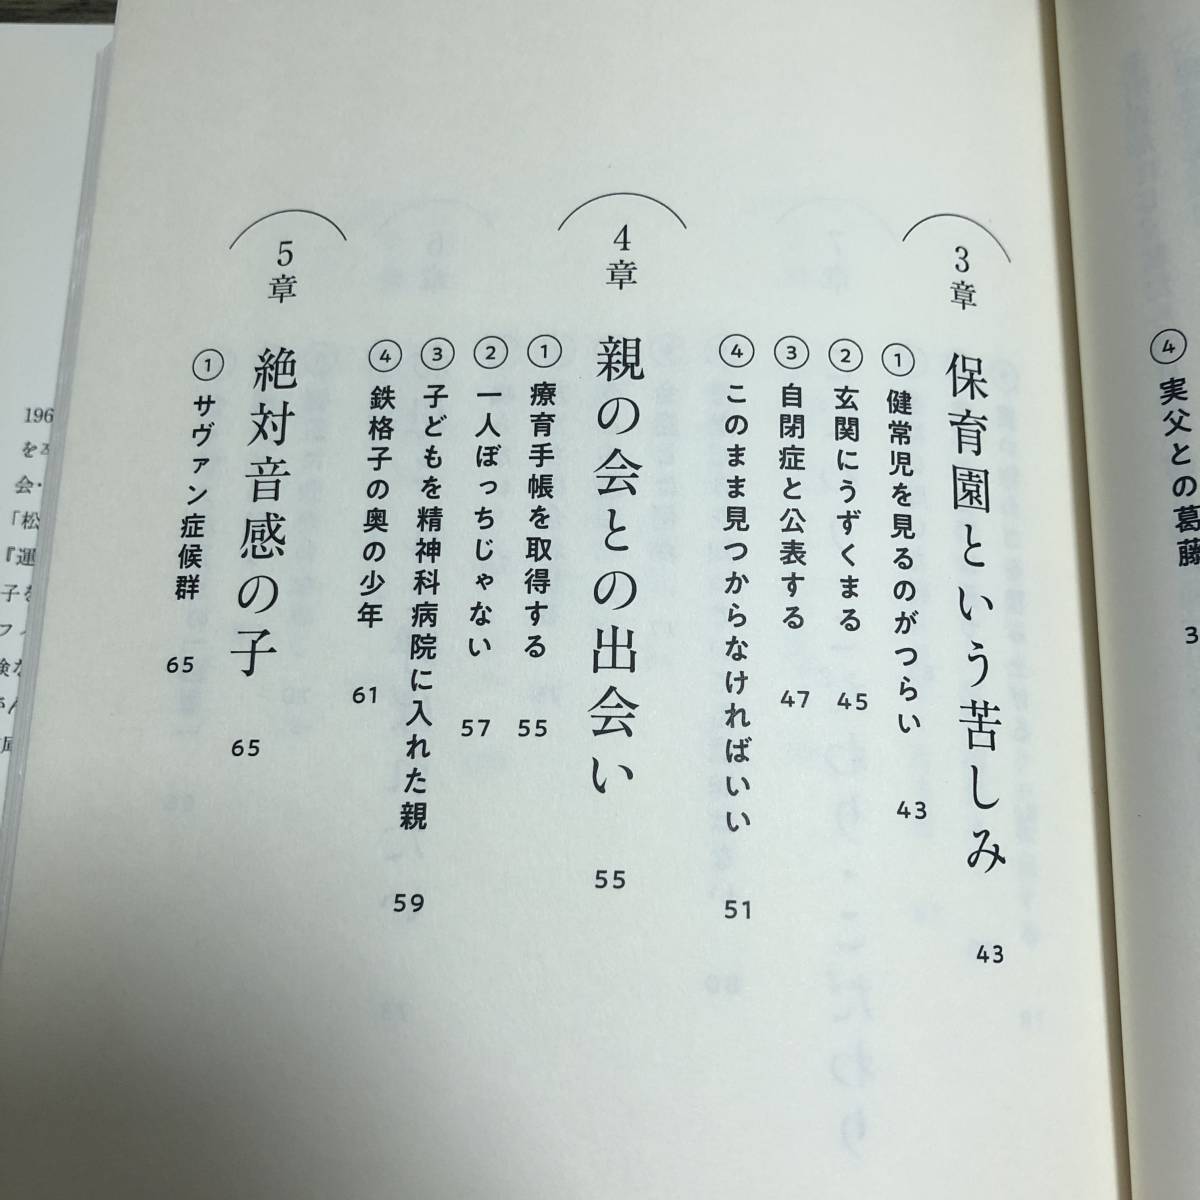 ④ 実父との葛藤
3章 保育園という苦しみ 43
① 健常児を見るのがつらい 43
② 玄関にうずくまる 45
③ 自閉症と公表する 47
④ このまま見つからなければいい 51
4章 親の会との出会い 55
① 療育手帳を取得する 55
② 一人ぼっちじゃない 57
③ 子どもを精神科病院に入れた親 59
④ 鉄格子の奥の少年 61
5章 絶対音感の子 65
① サヴァン症候群 65
196
を
会・
「松
『運
子を
フ
険な